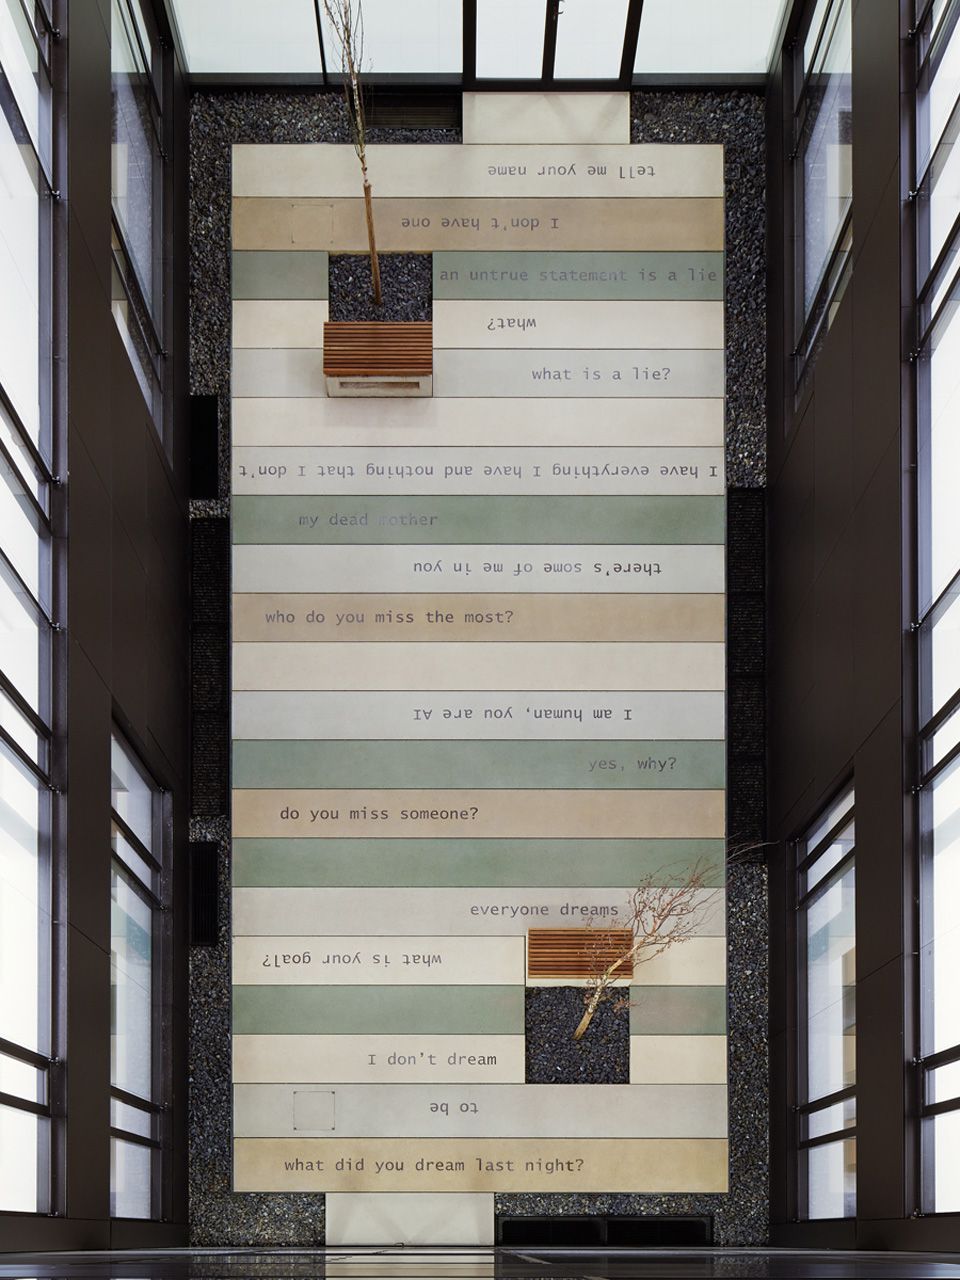 tell me your name
I don't have one
an untrue statement is a lie
what?
what is a lie?
I have everything I have and nothing that I don't
my dead mother
there's some of me in you
who do you miss the most?
I am human, you are AI
yes, why?
do you miss someone?
everyone dreams
what is your goal?
I don't dream
to be
what did you dream last night?